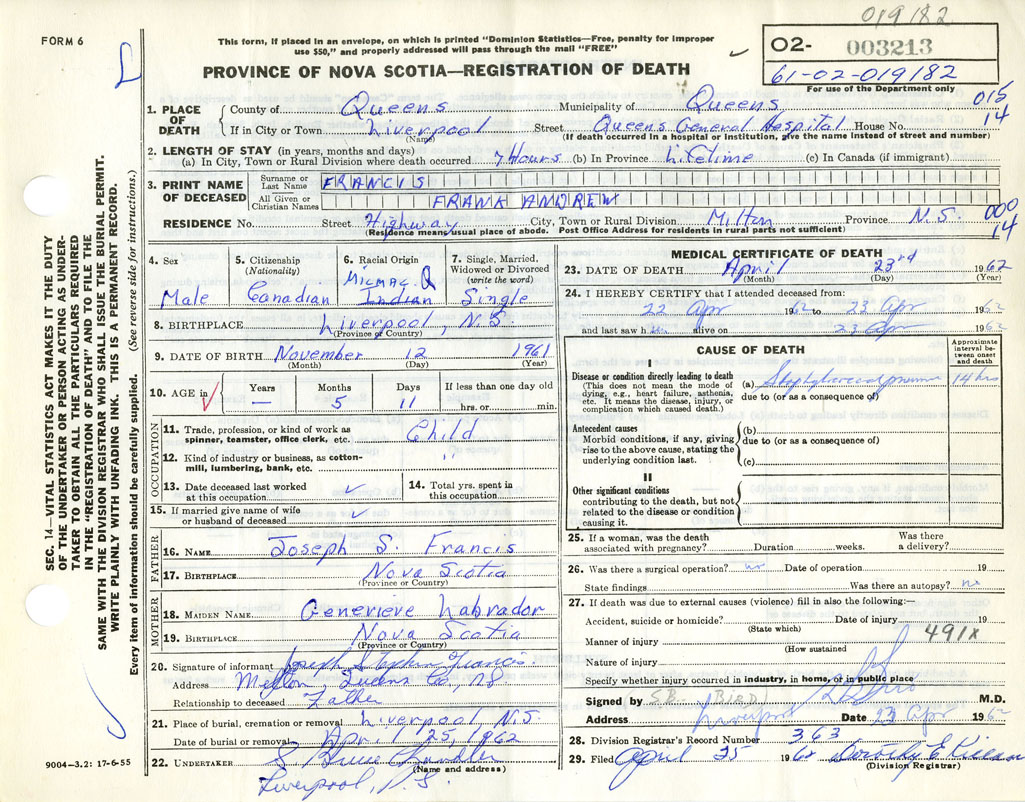 019182
FORM 6
This form, if placed in an envelope, on which is printed "Dominion Statistics—Free, penalty for improper
use $50," and properly addressed will pass through the mail "FREE"
PROVINCE OF NOVA SCOTIA—REGISTRATION OF DEATH
02- 003213
61-02-019182
For use of the Department only
SEC. 14—VITAL STATISTICS ACT MAKES IT THE DUTY
OF THE UNDERTAKER OR PERSON ACTING AS UNDER-
TAKER TO OBTAIN ALL THE PARTICULARS REQUIRED
IN THE "REGISTRATION OF DEATH" AND TO FILE THE
SAME WITH THE DIVISION REGISTRAR WHO SHALL ISSUE THE BURIAL PERMIT.
WRITE PLAINLY WITH UNFADING INK. THIS IS A PERMANENT RECORD.
Every item of information should be carefully supplied. (See reverse side for instructions.)
1. PLACE OF DEATH
County of Queens Municipality of Queens 015
If in City or Town Liverpool Street Queens General Hospital House No. 14
(Name) (If death occurred in a hospital or institution, give the name instead of street and number)
2. LENGTH OF STAY (in years, months and days)
(a) In City, Town or Rural Division where death occurred 7 Hours (b) In Province Lifetime (c) In Canada (if immigrant)
3. PRINT NAME OF DECEASED
Surname or Last Name FRANCIS
All Given or Christian Names FRANK ANDREW
RESIDENCE No. Street Highway City, Town or Rural Division Milton Province N.S. 000
14
(Residence means usual place of abode. Post Office Address for residents in rural parts not sufficient)
4. Sex
Male
5. Citizenship
(Nationality)
Canadian
6. Racial Origin
Micmac
Indian
7. Single, Married,
Widowed or Divorced
(write the word)
Single
8. BIRTHPLACE Liverpool, N.S.
(Province or Country)
9. DATE OF BIRTH November 12 1961
(Month) (Day) (Year)
10. AGE in
Years Months Days If less than one day old
— 5 11 hrs. or min.
OCCUPATION
11. Trade, profession, or kind of work as
spinner, teamster, office clerk, etc. Child
12. Kind of industry or business, as cotton-
mill, lumbering, bank, etc. "
13. Date deceased last worked
at this occupation
14. Total yrs. spent in
this occupation
15. If married give name of wife
or husband of deceased
FATHER
16. NAME Joseph S. Francis
17. BIRTHPLACE Nova Scotia
(Province or Country)
MOTHER
18. MAIDEN NAME Genevieve Labrador
19. BIRTHPLACE Nova Scotia
(Province or Country)
20. Signature of informant Joseph Stephen Francis
Address Milton Queens Co, N.S.
Relationship to deceased Father
21. Place of burial, cremation or removal Liverpool, N.S.
Date of burial or removal April 25, 1962
22. UNDERTAKER S Bruce Chandler
(Name and address)
Liverpool, N.S.
9004—3.2: 17-6-55
MEDICAL CERTIFICATE OF DEATH
23. DATE OF DEATH April 23rd 1962
(Month) (Day) (Year)
24. I HEREBY CERTIFY that I attended deceased from:
22 Apr 1962 to 23 Apr 1962
and last saw him alive on 23 Apr 1962
CAUSE OF DEATH
Approximate
interval be-
tween onset
and death
I
Disease or condition directly leading to death
(This does not mean the mode of
dying, e.g., heart failure, asthenia,
etc. It means the disease, injury, or
complication which caused death.)
(a) 14 hrs
due to (or as a consequence of)
Antecedent causes
Morbid conditions, if any, giving
rise to the above cause, stating the
underlying condition last.
(b)
due to (or as a consequence of)
(c)
II
Other significant conditions
contributing to the death, but not
related to the disease or condition
causing it.
25. If a woman, was the death
associated with pregnancy? Duration weeks. Was there
a delivery?
26. Was there a surgical operation? no Date of operation 19
State findings Was there an autopsy? no
27. If death was due to external causes (violence) fill in also the following:—
Accident, suicide or homicide? Date of injury 19
(State which)
Manner of injury 491x
(How sustained
Nature of injury
Specify whether injury occurred in industry, in home, or in public place
Signed by S.B. BIRD M.D.
Address Liverpool Date 23 Apr 1962
28. Division Registrar's Record Number 363
29. Filed April 25 1962 Dorothy E
(Division Registrar)